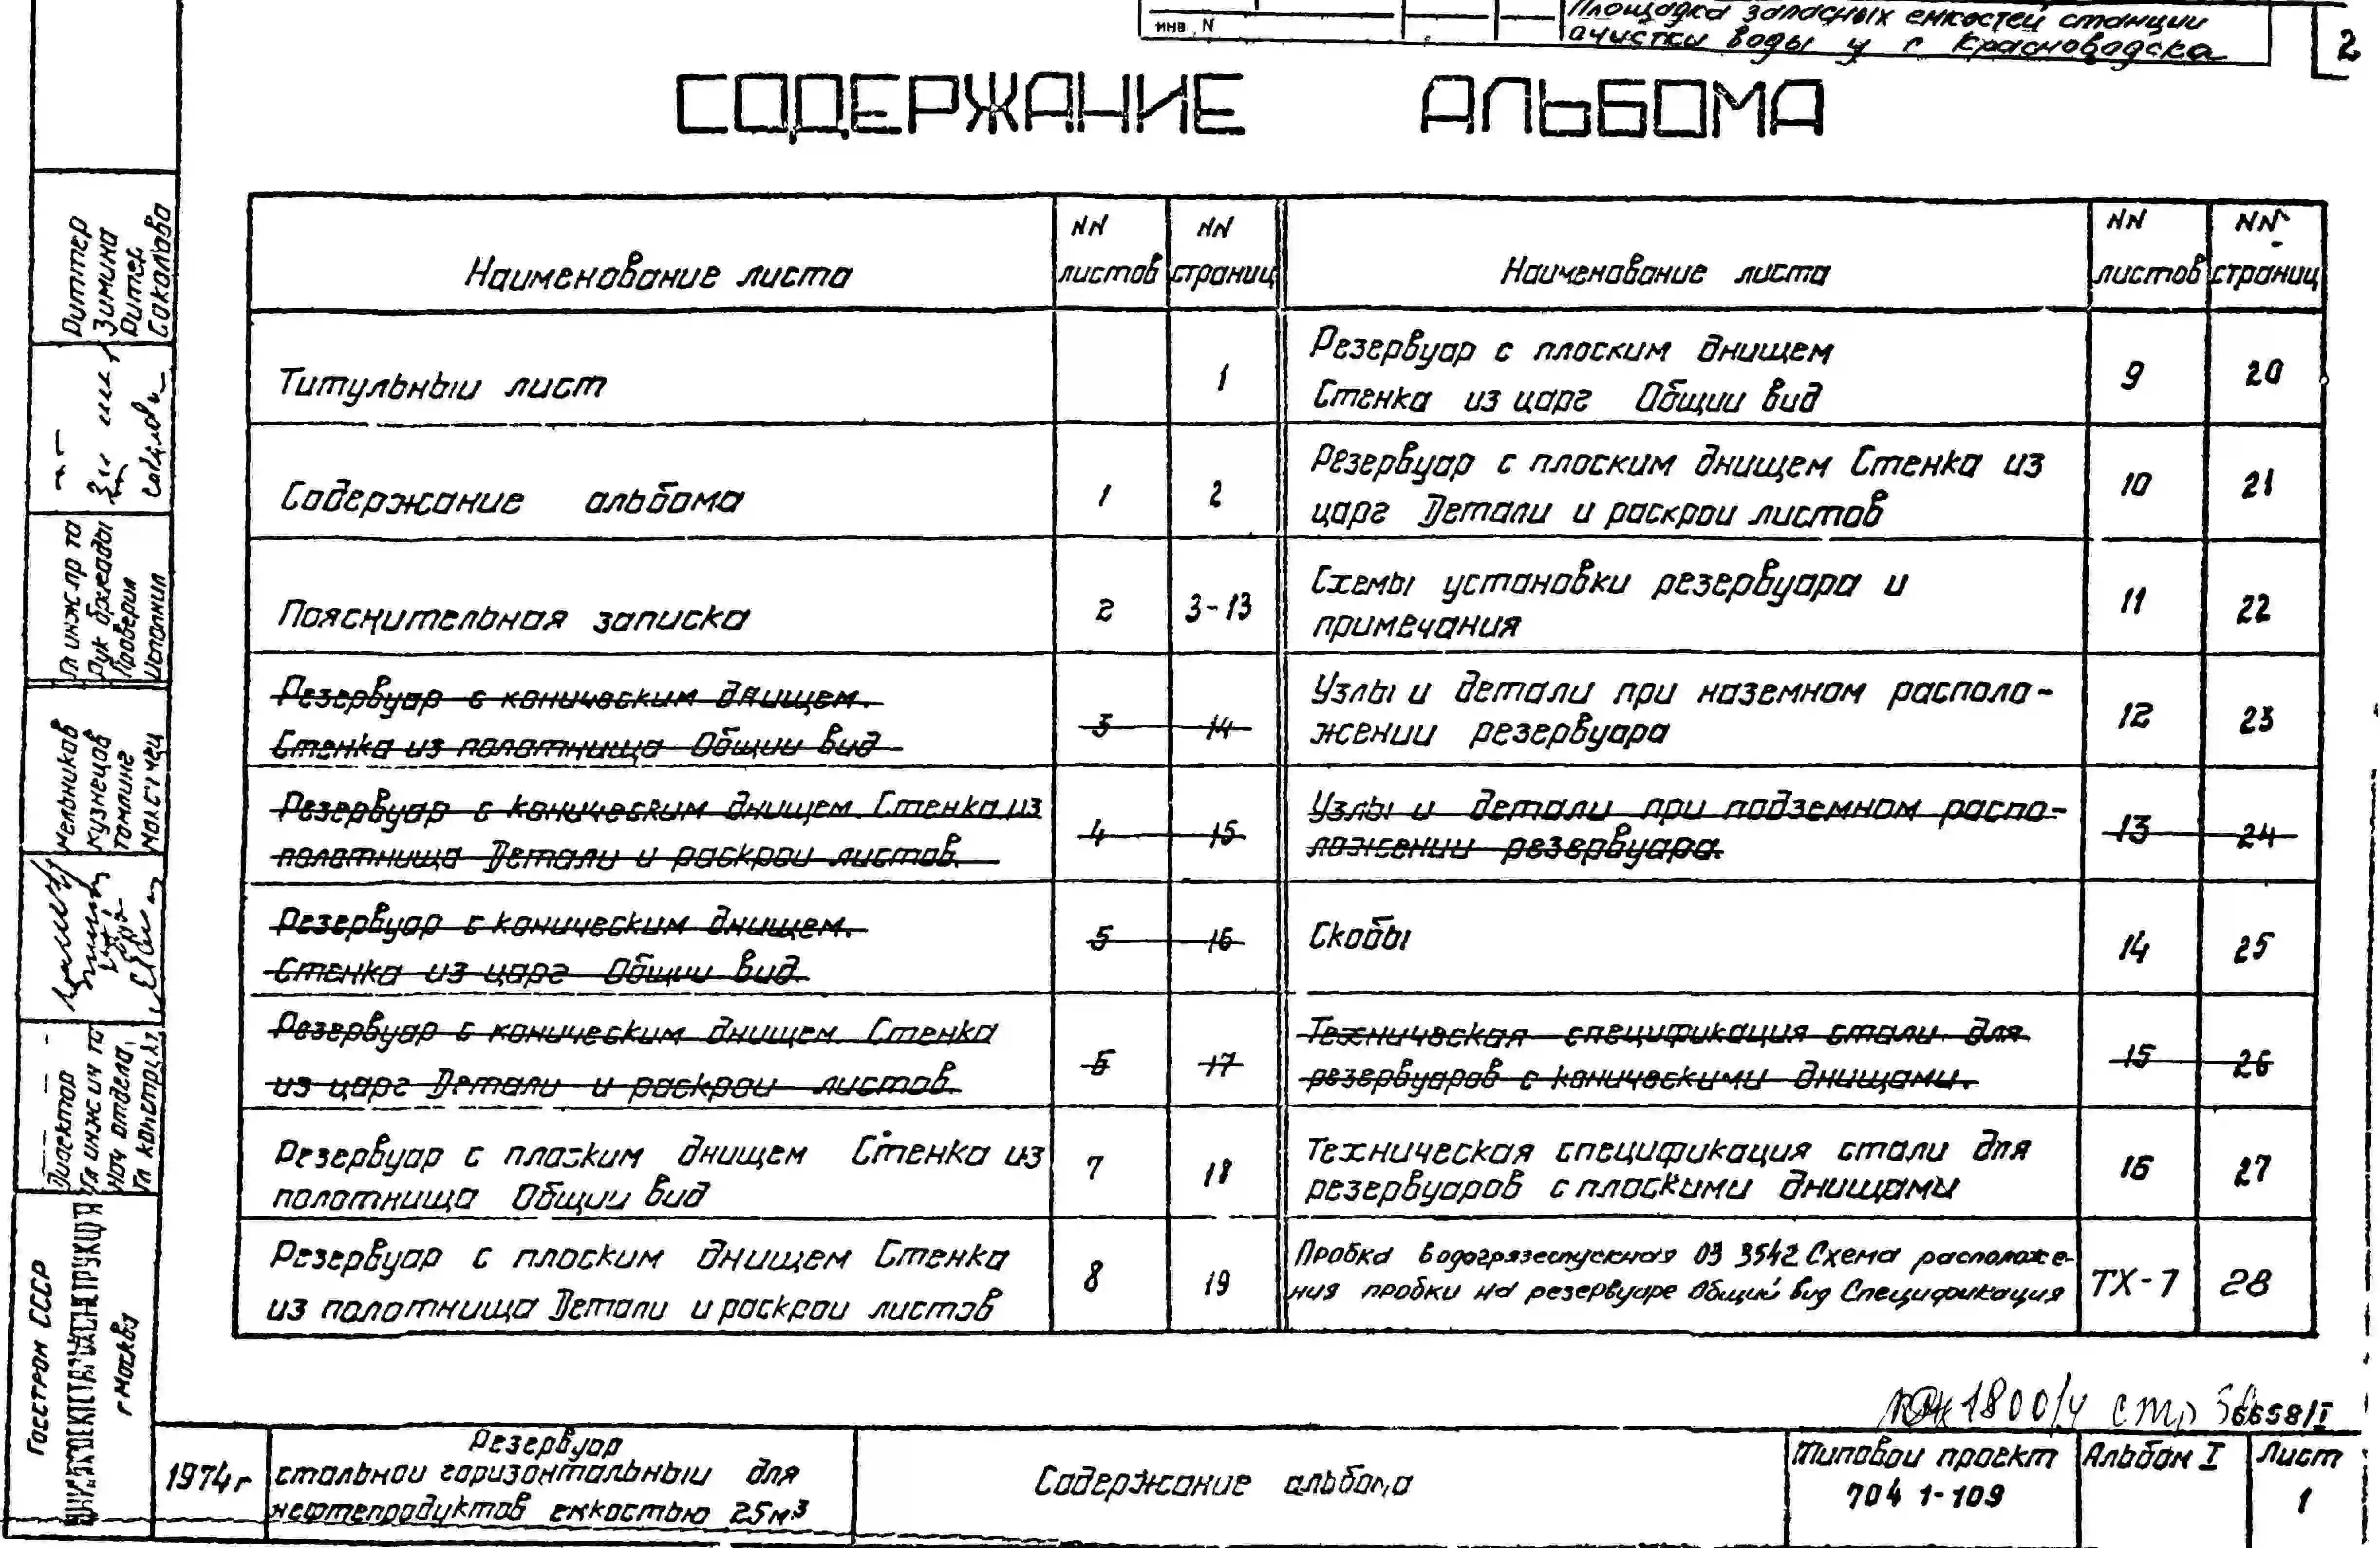 Площадка запасных емкостей станции
очистки воды у г Красноводска
инв. N
2
СОДЕРЖАНИЕ АЛЬБОМА
Наименование листа
NN листов
NN страниц
Наименование листа
NN листов
NN страниц
Титульныи лист
1
Содержание альбома
1
2
Пояснительная записка
2
3-13
Резервуар с коническим днищем.
Стенка из полотнища Общии вид
3
14
Резервуар с коническим днищем. Стенка из
полотнища Детали и раскрои листов.
4
15
Резервуар с коническим днищем.
Стенка из царг Общии вид.
5
16
Резервуар с коническим днищем. Стенка
из царг Детали и раскрои листов.
6
17
Резервуар с плоским днищем Стенка из
полотнища Общии вид
7
18
Резервуар с плоским днищем Стенка
из полотнища Детали и раскрои листов
8
19
Резервуар с плоским днищем
Стенка из царг Общии вид
9
20
Резервуар с плоским днищем Стенка из
царг Детали и раскрои листов
10
21
Схемы установки резервуара и
примечания
11
22
Узлы и детали при наземном располо-
жении резервуара
12
23
Узлы и детали при подземном распо-
ложении резервуара.
13
24
Скобы
14
25
Техническая спецификация стали для
резервуаров с коническими днищами.
15
26
Техническая спецификация стали для
резервуаров с плоскими днищами
16
27
Пробка водогрязеспускная ОЗ 3542 Схема расположе-
ния пробки на резервуаре Общий вид Спецификация
ТХ-7
28
Риттер
Зимина
Ритер
Соколова
Гл инж.пр та
Рук бригады
Проверил
Исполнил
Мельников
Кузнецов
Томлинг
Директор
Гл инж ин та
Нач отдела
Гл констр
Госстрои СССР
ЦНИИПРОЕКТСТАЛЬКОНСТРУКЦИЯ
г Москва
1800/4 стр
6658/I
1974г
Резервуар
стальнои горизонтальныи для
нефтепродуктов емкостью 25м³
Содержание альбома
Типовои проект
704 1-109
Альбом I
Лист
1